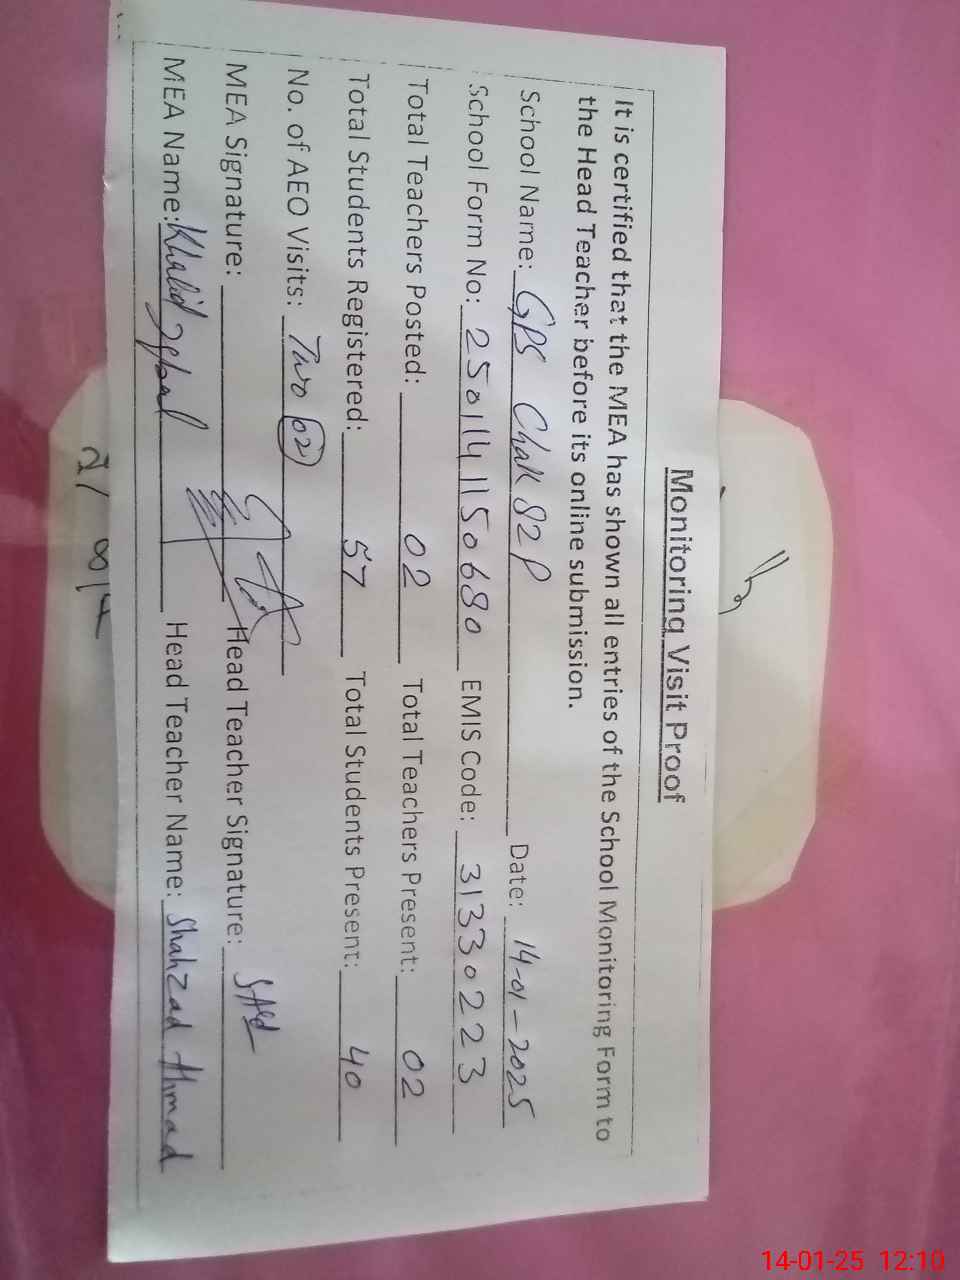 Monitoring Visit Proof
It is certified that the MEA has shown all entries of the School Monitoring Form to
the Head Teacher before its online submission.
School Name: GPS Chak 82 P Date: 14-01-2025
School Form No: 2501141150680 EMIS Code: 31330223
Total Teachers Posted: 02 Total Teachers Present: 02
Total Students Registered: 57 Total Students Present: 40
No. of AEO Visits: Two 02
MEA Signature: Head Teacher Signature:
MEA Name: Khalid Iqbal Head Teacher Name: Shahzad Ahmad
14-01-25 12:10